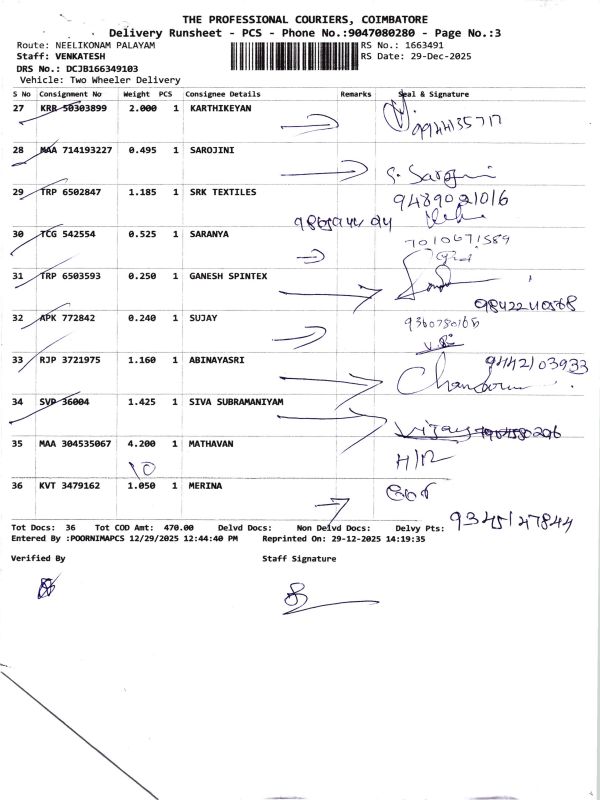 THE PROFESSIONAL COURIERS, COIMBATORE
Delivery Runsheet - PCS - Phone No.:9047080280 - Page No.:3
Route: NEELIKONAM PALAYAM RS No.: 1663491
Staff: VENKATESH RS Date: 29-Dec-2025
DRS No.: DCJB166349103
Vehicle: Two Wheeler Delivery
S No Consignment No Weight PCS Consignee Details Remarks Seal & Signature
27 KRR 50303899 2.000 1 KARTHIKEYAN
9944135717
28 MAA 714193227 0.495 1 SAROJINI
S. Sarojini
29 TRP 6502847 1.185 1 SRK TEXTILES
9489021016
30 TCG 542554 0.525 1 SARANYA
7010671589
31 TRP 6503593 0.250 1 GANESH SPINTEX
32 APK 772842 0.240 1 SUJAY
33 RJP 3721975 1.160 1 ABINAYASRI
9442103933
34 SVP 36004 1.425 1 SIVA SUBRAMANIYAM
35 MAA 304535067 4.200 1 MATHAVAN
10
36 KVT 3479162 1.050 1 MERINA
9345127844
Tot Docs: 36 Tot COD Amt: 470.00 Delvd Docs: Non Delvd Docs: Delvy Pts:
Entered By :POORNIMAPCS 12/29/2025 12:44:40 PM Reprinted On: 29-12-2025 14:19:35
Verified By Staff Signature